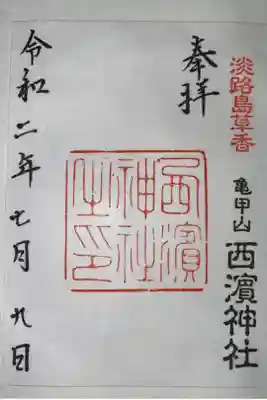 淡路島草香
亀甲山
西濱神社
奉拝
西濱
神社
之印
令和二年七月九日